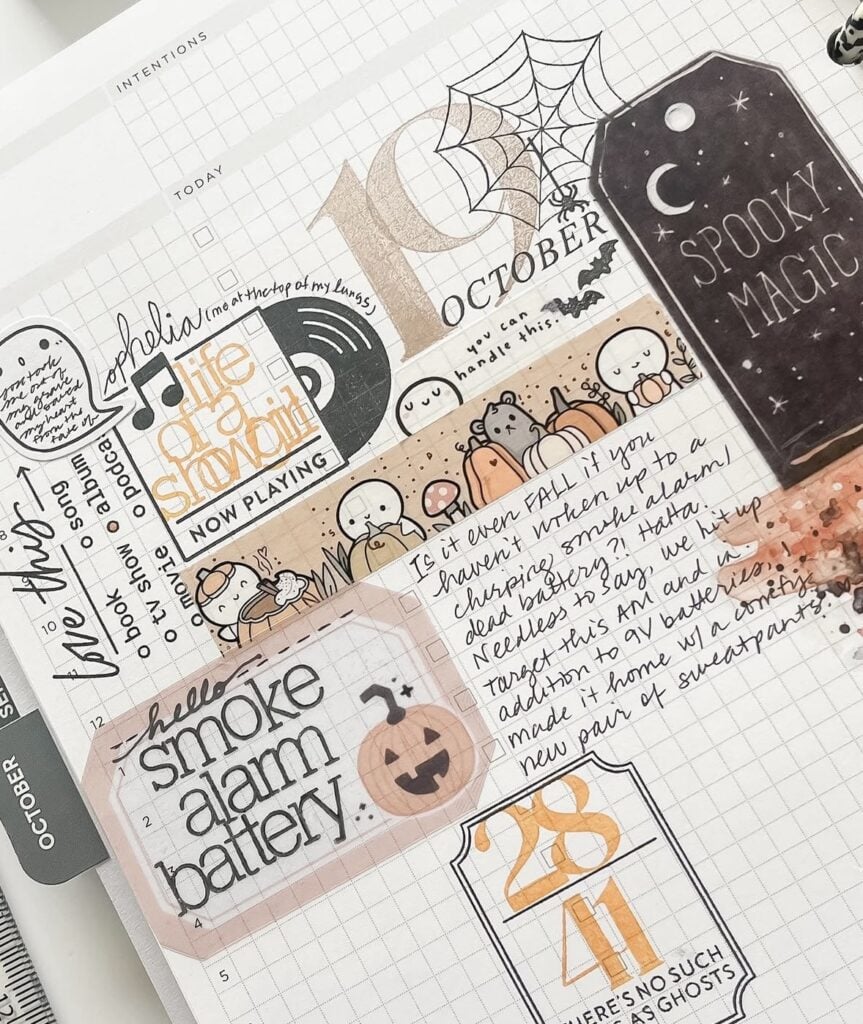 INTENTIONS
TODAY
19
OCTOBER
SPOOKY
MAGIC
you can
handle this.
ophelia (me at the top of my lungs)
life
of a
showgirl
NOW PLAYING
you took
me out of
my grave
and saved
my heart
from the
fate of
love this
song
album
podca
book
tv show
movie
Is it even FALL if you
haven't woken up to a
chirping smoke alarm/
dead battery?! Haha.
Needless to say, we hit up
target this AM and in
addition to 9V batteries, I
made it home w/ a comfy
new pair of sweatpants.
hello
smoke
alarm
battery
28
41
HERE'S NO SUCH
AS GHOSTS
OCTOBER
SE
8
10
11
12
1
2
3
4
5
12